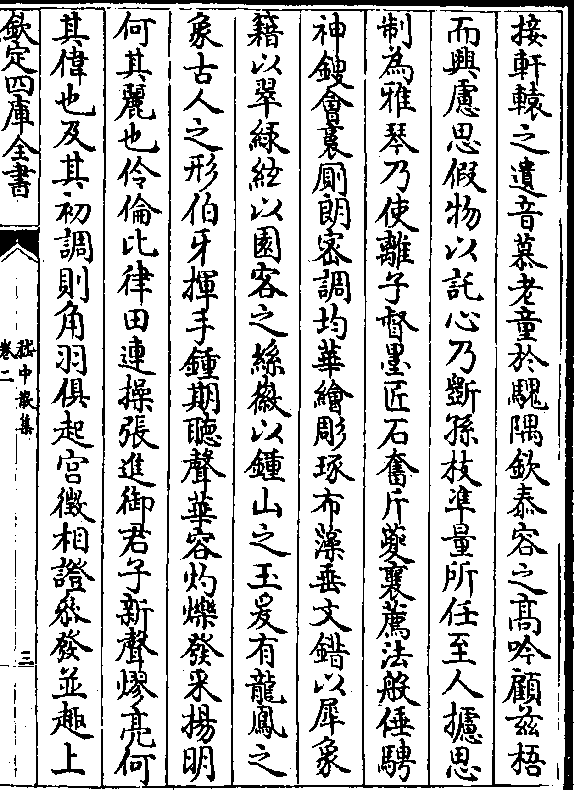 接軒轅之遺音慕老童於騩隅欽泰容之髙吟顧兹梧
而興慮思假物以託心乃斵孫枝凖量所任至人攄思
制為雅琴乃使離子督墨匠石奮斤䕫襄薦法般倕騁
神鎪㑹裛厠朗宻調均華繪彫琢布藻垂文錯以犀象
籍以翠緑絃以園客之絲徽以鍾山之玉爰有龍鳳之
象古人之形伯牙揮手鍾期聽聲華容灼爍發采揚明
何其麗也伶倫比律田連操張進御君子新聲憀亮何
其偉也及其初調則角羽俱起宫徵相證叅發並趣上
欽定四庫全書
嵇中散集
卷二
三